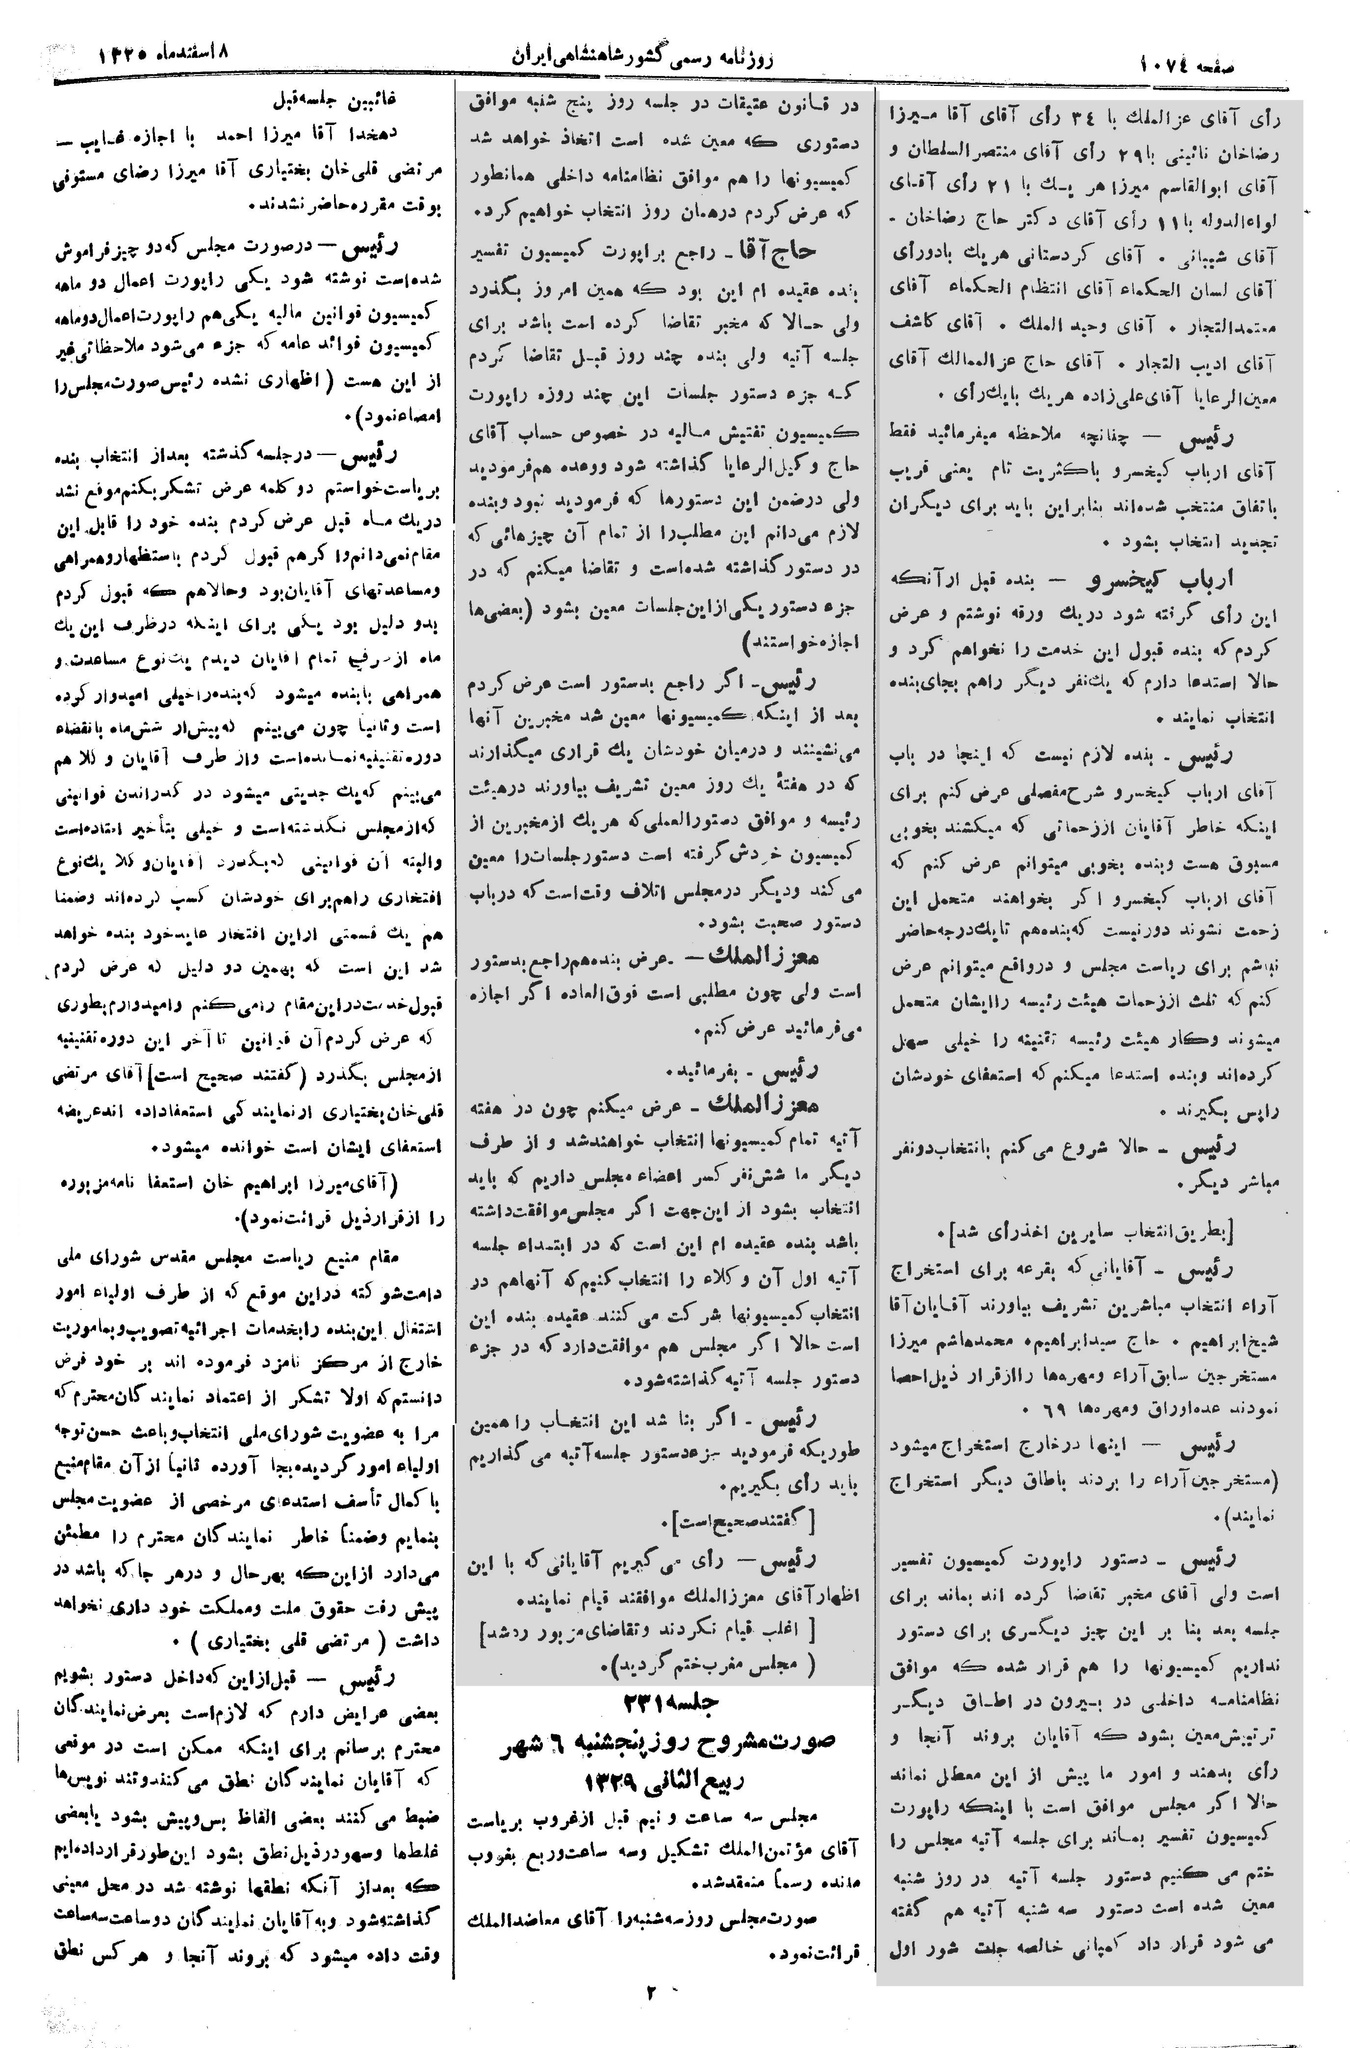 صفحه ۱۰۷٤
روزنامه رسمی کشور شاهنشاهی ایران
۸ اسفندماه ۱۳۲۵
رأی آقای عزالملك با ۳٤ رأی آقای آقا میرزا
رضاخان نائینی با ۲۹ رأی آقای منتصرالسلطان و
آقای ابوالقاسم میرزا هر یك با ۲۱ رأی آقای
لواءالدوله با ۱۱ رأی آقای دکتر حاج رضاخان -
آقای شیبانی . آقای کردستانی هریك بادورأی
آقای لسان الحکماء آقای انتظام الحکماء آقای
معتمدالتجار . آقای وحید الملك . آقای کاشف
آقای ادیب التجار . آقای حاج عزالممالك آقای
معین‌الرعایا آقای علی‌زاده هریك بایك رأی .
رئیس — چنانچه ملاحظه میفرمائید فقط
آقای ارباب کیخسرو باکثریت تام یعنی قریب
باتفاق منتخب شده‌اند بنابراین باید برای دیگران
تجدید انتخاب بشود .
ارباب کیخسرو — بنده قبل ازآنکه
این رأی گرفته شود دریك ورقه نوشتم و عرض
کردم که بنده قبول این خدمت را نخواهم کرد و
حالا استدعا دارم که یك‌نفر دیگر راهم بجای بنده
انتخاب نمایند .
رئیس - بنده لازم نیست که اینجا در باب
آقای ارباب کیخسرو شرح مفصلی عرض کنم برای
اینکه خاطر آقایان اززحماتی که میکشند بخوبی
مسبوق هست وبنده بخوبی میتوانم عرض کنم که
آقای ارباب کیخسرو اکر بخواهند متحمل این
زحمت نشوند دورنیست که بنده‌هم تایك‌درجه حاضر
نباشم برای ریاست مجلس و درواقع میتوانم عرض
کنم که ثلث اززحمات هیئت رئیسه راایشان متحمل
میشوند وکار هیئت رئیسه تقنینه را خیلی سهل
کرده‌اند وبنده استدعا میکنم که استعفای خودشان
راپس بگیرند .
رئیس - حالا شروع می‌کنم بانتخاب دونفر
مباشر دیگر.
[بطریق انتخاب سایرین اخذرأی شد].
رئیس - آقایانی که بقرعه برای استخراج
آراء انتخاب مباشرین تشریف بیاورند آقایان‌آقا
شیخ‌ابراهیم . حاج سیدابراهیم. محمدهاشم میرزا
مستخرجین سابق آراء ومهره‌ها رااز قرار ذیل احصا
نمودند عده اوراق ومهره‌ها ٦۹ .
رئیس — اینها درخارج استخراج میشود
(مستخرجین آراء را بردند باطاق دیگر استخراج
نمایند).
رئیس - دستور راپورت کمیسیون تفسیر
است ولی آقای مخبر تقاضا کرده اند بماند برای
جلسه بعد بنا بر این چیز دیگری برای دستور
نداریم کمیسیونها را هم قرار شده که موافق
نظامنامه داخلی در بیرون در اطاق دیگر
ترتیبش معین بشود که آقایان بروند آنجا و
رأی بدهند و امور ما پیش از این معطل نماند
حالا اکر مجلس موافق است با اینکه راپورت
کمیسیون تفسیر بماند برای جلسه آتیه مجلس را
ختم می کنیم دستور جلسه آتیه در روز شنبه
معین شده است دستور سه شنبه آتیه هم گفته
می شود قرار داد کمپانی خالصه جات شور اول
در قانون عتیقات در جلسه روز پنج شنبه موافق
دستوری که معین شده است اتخاذ خواهد شد
کمیسیونها را هم موافق نظامنامه داخلی همانطور
که عرض کردم درهمان روز انتخاب خواهیم کرد.
حاج آقا - راجع براپورت کمیسیون تفسیر
بنده عقیده ام این بود که همین امروز بگذرد
ولی حالا که مخبر تقاضا کرده است باشد برای
جلسه آتیه ولی بنده چند روز قبل تقاضا کردم
که جزء دستور جلسات این چند روزه راپورت
کمیسیون تفتیش مالیه در خصوص حساب آقای
حاج وکیل‌الرعایا گذاشته شود ووعده هم‌فرمودید
ولی درضمن این دستورها که فرمودید نبود وبنده
لازم می‌دانم این مطلب‌را از تمام آن چیزهائی که
در دستور گذاشته شده‌است و تقاضا میکنم که در
جزء دستور یکی ازاین‌جلسات معین بشود (بعضی‌ها
اجازه خواستند)
رئیس- اگر راجع بدستور است عرض کردم
بعد از اینکه کمیسیونها معین شد مخبرین آنها
می‌نشینند و درمیان خودشان یك قراری میگذارند
که در هفتهٔ یك روز معین تشریف بیاورند درهیئت
رئیسه و موافق دستورالعملی‌که هریك ازمخبرین از
کمیسیون خودش گرفته است دستورجلسات را معین
می‌کند ودیگر درمجلس اتلاف وقت‌است که درباب
دستور صحبت بشود.
معززالملك — عرض بنده‌هم راجع بدستور
است ولی چون مطلبی است فوق‌العاده اگر اجازه
می‌فرمائید عرض کنم.
رئیس - بفرمائید.
معززالملك - عرض میکنم چون در هفته
آتیه تمام کمیسیونها انتخاب خواهندشد و از طرف
دیگر ما شش‌نفر کسر اعضاء مجلس داریم که باید
انتخاب بشود از این‌جهت اگر مجلس موافقت‌داشته
باشد بنده عقیده ام این است که در ابتداء جلسه
آتیه اول آن وکلاء را انتخاب کنیم که آنهاهم در
انتخاب کمیسیونها شرکت می کنند عقیده بنده این
است حالا اگر مجلس هم موافقت‌دارد که در جزء
دستور جلسه آتیه گذاشته‌شود.
رئیس - اگر بنا شد این انتخاب را همین
طوریکه فرمودید جزءدستور جلسه‌آتیه می گذاریم
باید رأی بگیریم.
[گفتند صحیح‌است].
رئیس — رأی می گیریم آقایانی که با این
اظهار آقای معززالملك موافقند قیام نمایند.
[ اغلب قیام نکردند وتقاضای مزبور رد شد]
( مجلس مغرب ختم گردید).
جلسه ۲۳۱
صورت مشروح روز پنجشنبه ٦ شهر
ربیع الثانی ۱۳۲۹
مجلس سه ساعت و نیم قبل ازغروب بریاست
آقای مؤتمن‌الملك تشکیل وسه ساعت‌وربع بغروب
مانده رسماً منعقدشد.
صورت مجلس روزسه‌شنبه‌را آقای معاضدالملك
قرائت‌نمود.
غائبین جلسه قبل
دهخدا آقا میرزا احمد با اجازه غایب —
مرتضی قلی‌خان بختیاری آقا میرزا رضای مستوفی
بوقت مقرره حاضر نشدند.
رئیس — درصورت مجلس که دو چیز فراموش
شده‌است نوشته شود یکی راپورت اعمال دو ماهه
کمیسیون قوانین مالیه یکی‌هم راپورت اعمال‌دوماهه
کمیسیون فوائد عامه که جزء می‌شود ملاحظاتی‌غیر
از این هست (اظهاری نشده رئیس صورت‌مجلس را
امضاءنمود).
رئیس — درجلسه گذشته بعداز انتخاب بنده
بریاست‌خواستم دو کلمه عرض تشکر بکنم موقع نشد
دریك ماه قبل عرض کردم بنده خود را قابل این
مقام نمی‌دانم واکر هم قبول کردم باستظهار وهمراهی
ومساعدتهای آقایان‌بود وحالاهم که قبول کردم
بدو دلیل بود یکی برای اینکه درظرف این یك
ماه از طرف تمام آقایان دیدم یك نوع مساعدت و
همراهی بابنده میشود که‌بنده‌راخیلی امیدوار کرده
است وثانیاً چون می‌بینم که‌بیش‌از شش‌ماه بانقضاء
دوره تقنینیه نمانده‌است واز طرف آقایان وکلا هم
می‌بینم که‌یك جدیتی میشود در گذراندن قوانینی
که‌ازمجلس نگذشته‌است و خیلی بتأخیر افتاده‌است
والبته آن قوانینی که‌بگذرد آقایان‌وکلا یك‌نوع
افتخاری راهم برای خودشان کسب کرده‌اند وضمناً
هم یك قسمتی ازاین افتخار عایدخود بنده خواهد
شد این است که بهمین دو دلیل که عرض کردم
قبول‌خدمت‌دراین‌مقام رامی‌کنم وامیدوارم بطوری
که عرض کردم‌آن قوانین تاآخر این دوره تقنینیه
ازمجلس بگذرد (گفتند صحیح است] آقای مرتضی
قلی‌خان بختیاری ازنمایندگی استعفاداده اندعریضه
استعفای ایشان است خوانده میشود.
(آقای میرزا ابراهیم خان استعفا نامه مزبوره
را ازقرارذیل قرائت‌نمود).
مقام منیع ریاست مجلس مقدس شورای ملی
دامت‌شوکته دراین موقع که از طرف اولیاء امور
اشتغال این‌بنده رابخدمات اجرائیه تصویب‌وبماموریت
خارج از مرکز نامزد فرموده اند بر خود فرض
دانستم‌که اولا تشکر از اعتماد نمایندگان‌محترم که
مرا به عضویت شورای‌ملی انتخاب وباعث حسن‌توجه
اولیاء امور گردیده‌بجا آورده ثانیاً ازآن مقام‌منیع
باکمال تأسف استدعای مرخصی از عضویت‌مجلس
بنمایم وضمناً خاطر نمایندگان محترم را مطمئن
می‌دارد ازاین‌که بهرحال و درهر جاکه باشد در
پیش رفت حقوق ملت ومملکت خود داری نخواهد
داشت ( مرتضی قلی بختیاری ) .
رئیس — قبل ازاین که‌داخل دستور بشویم
بعضی عرایض دارم که لازم‌است بعرض نمایندگان
محترم برسانم برای اینکه ممکن است در موقعی
که آقایان نمایندگان نطق می‌کنندوتند نویس‌ها
ضبط می کنند بعضی الفاظ پس‌وپیش بشود یابعضی
غلط‌ها وسهودرذیل نطق بشود این‌طورقرارداده‌ایم
که بعداز آنکه نطقها نوشته شد در محل معینی
گذاشته‌شود وبه‌آقایان نمایندگان دوساعت‌سه‌ساعت
وقت داده میشود که بروند آنجا و هر کس نطق
۲